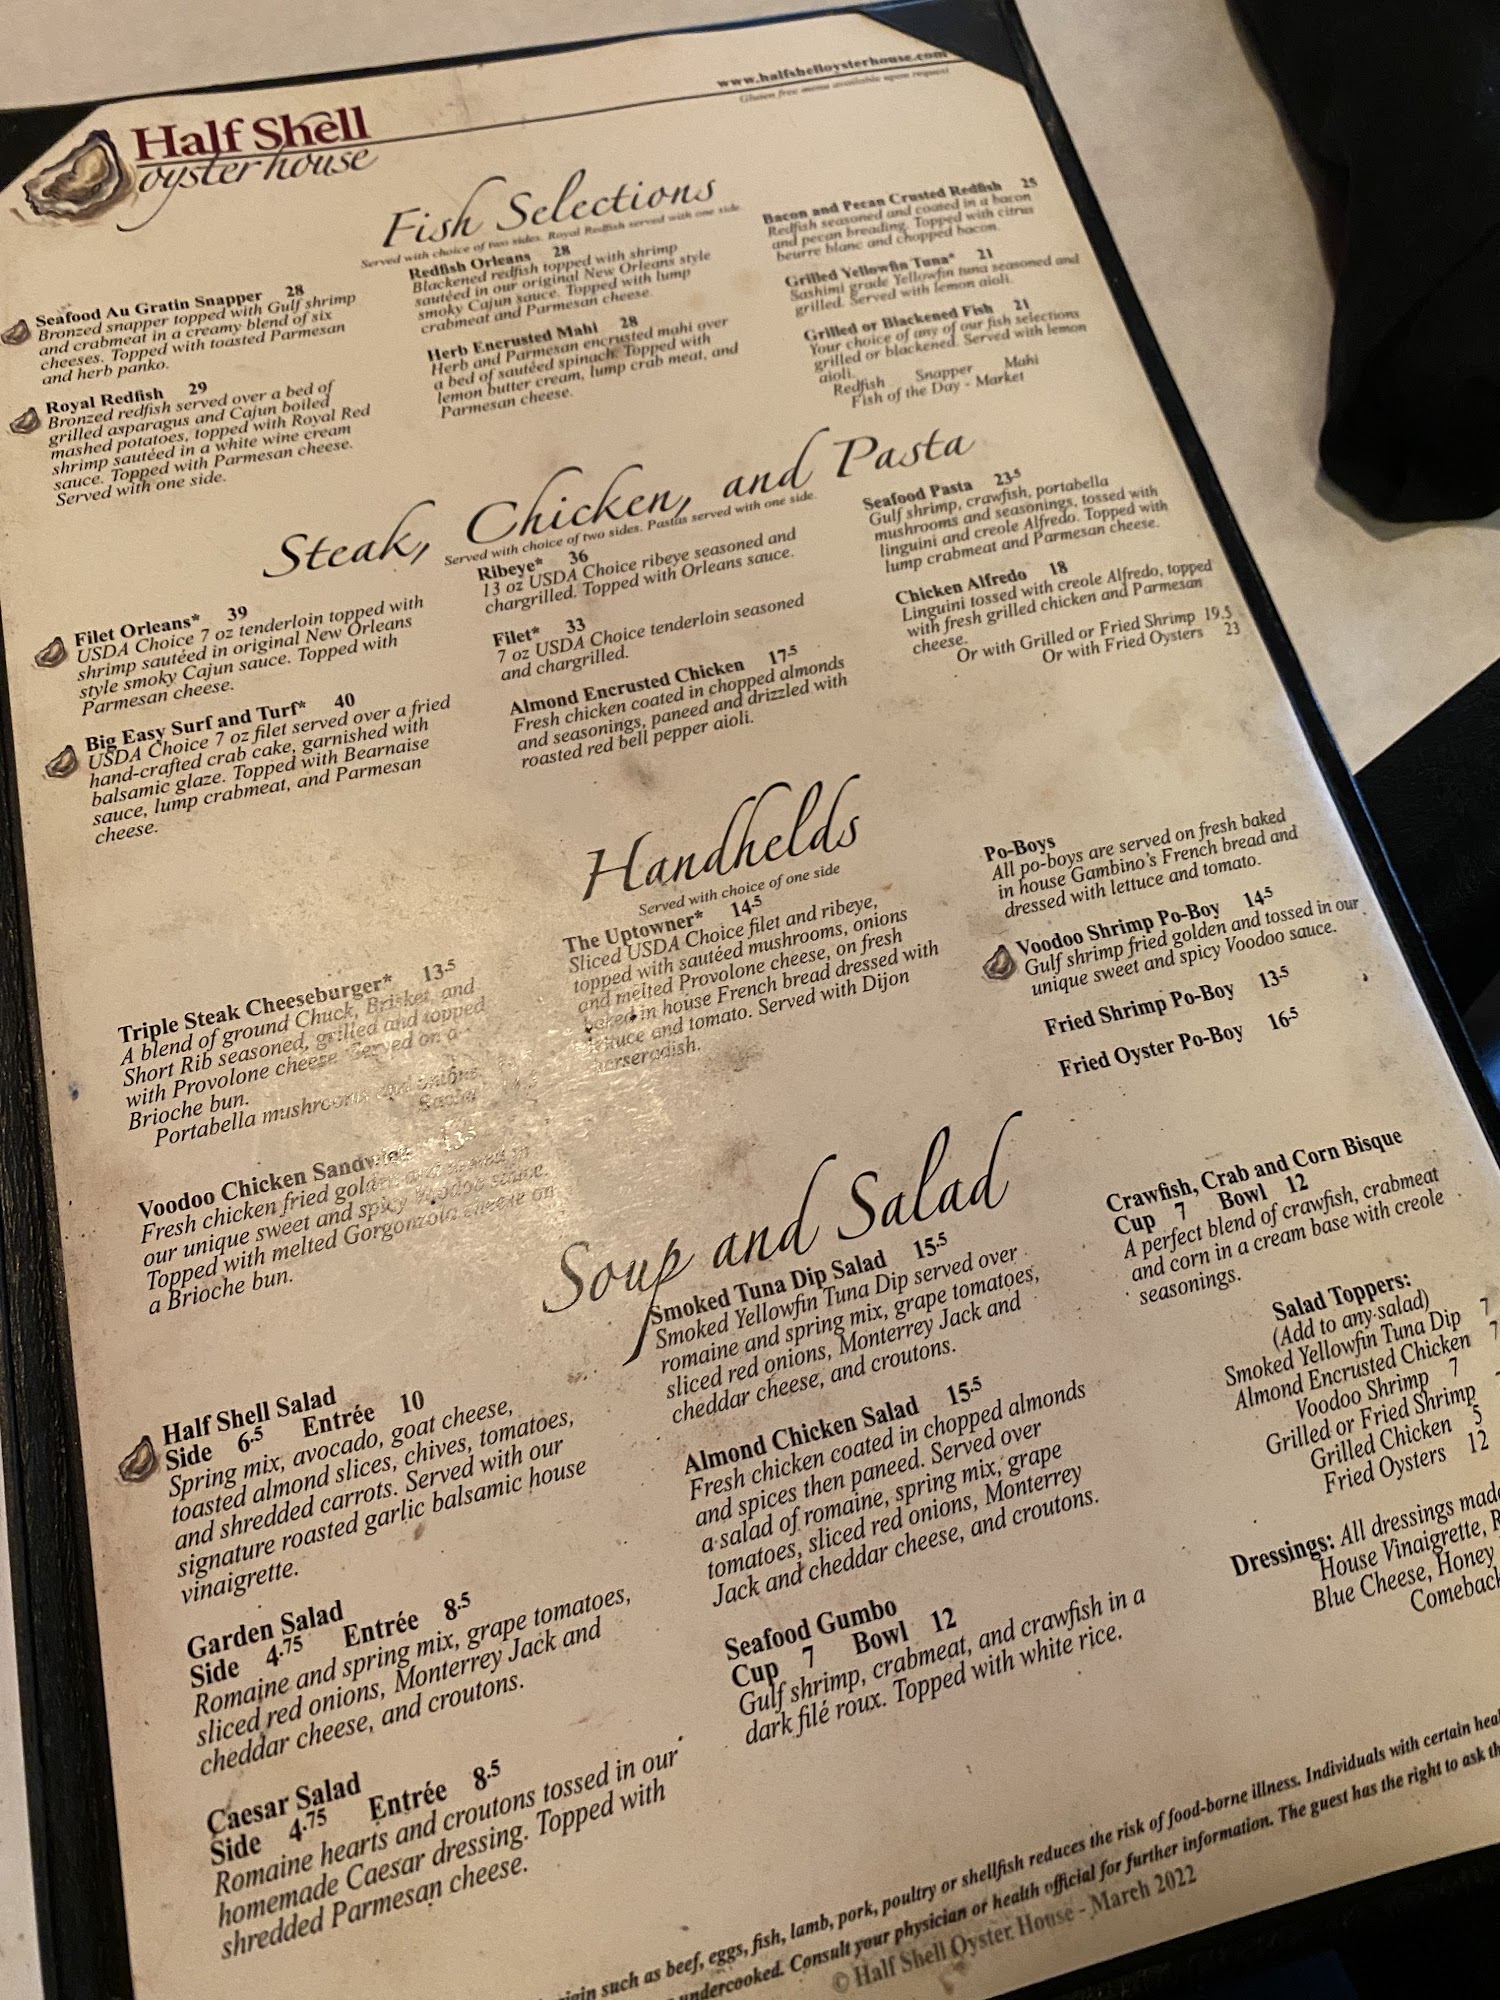 www.halfshelloysterhouse.com
Gluten free menu available upon request
Half Shell
oyster house
Fish Selections
Served with choice of two sides. Royal Redfish served with one side.
Seafood Au Gratin Snapper 28
Bronzed snapper topped with Gulf shrimp
and crabmeat in a creamy blend of six
cheeses. Topped with toasted Parmesan
and herb panko.
Royal Redfish 29
Bronzed redfish served over a bed of
grilled asparagus and Cajun boiled
mashed potatoes, topped with Royal Red
shrimp sautéed in a white wine cream
sauce. Topped with Parmesan cheese.
Served with one side.
Redfish Orleans 28
Blackened redfish topped with shrimp
sautéed in our original New Orleans style
smoky Cajun sauce. Topped with lump
crabmeat and Parmesan cheese.
Herb Encrusted Mahi 28
Herb and Parmesan encrusted mahi over
a bed of sautéed spinach. Topped with
lemon butter cream, lump crab meat, and
Parmesan cheese.
Bacon and Pecan Crusted Redfish 25
Redfish seasoned and coated in a bacon
and pecan breading. Topped with citrus
beurre blanc and chopped bacon.
Grilled Yellowfin Tuna* 21
Sashimi grade Yellowfin tuna seasoned and
grilled. Served with lemon aioli.
Grilled or Blackened Fish 21
Your choice of any of our fish selections
grilled or blackened. Served with lemon
aioli.
Redfish Snapper Mahi
Fish of the Day - Market
Steak, Chicken, and Pasta
Served with choice of two sides. Pastas served with one side.
Filet Orleans* 39
USDA Choice 7 oz tenderloin topped with
shrimp sautéed in original New Orleans
style smoky Cajun sauce. Topped with
Parmesan cheese.
Big Easy Surf and Turf* 40
USDA Choice 7 oz filet served over a fried
hand-crafted crab cake, garnished with
balsamic glaze. Topped with Bearnaise
sauce, lump crabmeat, and Parmesan
cheese.
Ribeye* 36
13 oz USDA Choice ribeye seasoned and
chargrilled. Topped with Orleans sauce.
Filet* 33
7 oz USDA Choice tenderloin seasoned
and chargrilled.
Almond Encrusted Chicken 17.5
Fresh chicken coated in chopped almonds
and seasonings, paneed and drizzled with
roasted red bell pepper aioli.
Seafood Pasta 23.5
Gulf shrimp, crawfish, portabella
mushrooms and seasonings, tossed with
linguini and creole Alfredo. Topped with
lump crabmeat and Parmesan cheese.
Chicken Alfredo 18
Linguini tossed with creole Alfredo, topped
with fresh grilled chicken and Parmesan
cheese.
Or with Grilled or Fried Shrimp 19.5
Or with Fried Oysters 23
Handhelds
Served with choice of one side
Triple Steak Cheeseburger* 13.5
A blend of ground Chuck, Brisket, and
Short Rib seasoned, grilled and topped
with Provolone cheese. Served on a
Brioche bun.
Portabella mushrooms and onions
Voodoo Chicken Sandwich 13.5
Fresh chicken fried golden and tossed in
our unique sweet and spicy Voodoo sauce.
Topped with melted Gorgonzola cheese on
a Brioche bun.
The Uptowner* 14.5
Sliced USDA Choice filet and ribeye,
topped with sautéed mushrooms, onions
and melted Provolone cheese, on fresh
baked in house French bread dressed with
lettuce and tomato. Served with Dijon
horseradish.
Po-Boys
All po-boys are served on fresh baked
in house Gambino's French bread and
dressed with lettuce and tomato.
Voodoo Shrimp Po-Boy 14.5
Gulf shrimp fried golden and tossed in our
unique sweet and spicy Voodoo sauce.
Fried Shrimp Po-Boy 13.5
Fried Oyster Po-Boy 16.5
Soup and Salad
Half Shell Salad
Side 6.5 Entrée 10
Spring mix, avocado, goat cheese,
toasted almond slices, chives, tomatoes,
and shredded carrots. Served with our
signature roasted garlic balsamic house
vinaigrette.
Garden Salad
Side 4.75 Entrée 8.5
Romaine and spring mix, grape tomatoes,
sliced red onions, Monterrey Jack and
cheddar cheese, and croutons.
Caesar Salad
Side 4.75 Entrée 8.5
Romaine hearts and croutons tossed in our
homemade Caesar dressing. Topped with
shredded Parmesan cheese.
Smoked Tuna Dip Salad 15.5
Smoked Yellowfin Tuna Dip served over
romaine and spring mix, grape tomatoes,
sliced red onions, Monterrey Jack and
cheddar cheese, and croutons.
Almond Chicken Salad 15.5
Fresh chicken coated in chopped almonds
and spices then paneed. Served over
a salad of romaine, spring mix, grape
tomatoes, sliced red onions, Monterrey
Jack and cheddar cheese, and croutons.
Seafood Gumbo
Cup 7 Bowl 12
Gulf shrimp, crabmeat, and crawfish in a
dark filé roux. Topped with white rice.
Crawfish, Crab and Corn Bisque
Cup 7 Bowl 12
A perfect blend of crawfish, crabmeat
and corn in a cream base with creole
seasonings.
Salad Toppers:
(Add to any salad)
Smoked Yellowfin Tuna Dip 7
Almond Encrusted Chicken 7
Voodoo Shrimp 7
Grilled or Fried Shrimp
Grilled Chicken 5
Fried Oysters 12
Dressings: All dressings made
House Vinaigrette, R
Blue Cheese, Honey
Comeback
such as beef, eggs, fish, lamb, pork, poultry or shellfish reduces the risk of food-borne illness. Individuals with certain heal
undercooked. Consult your physician or health official for further information. The guest has the right to ask th
© Half Shell Oyster House - March 2022